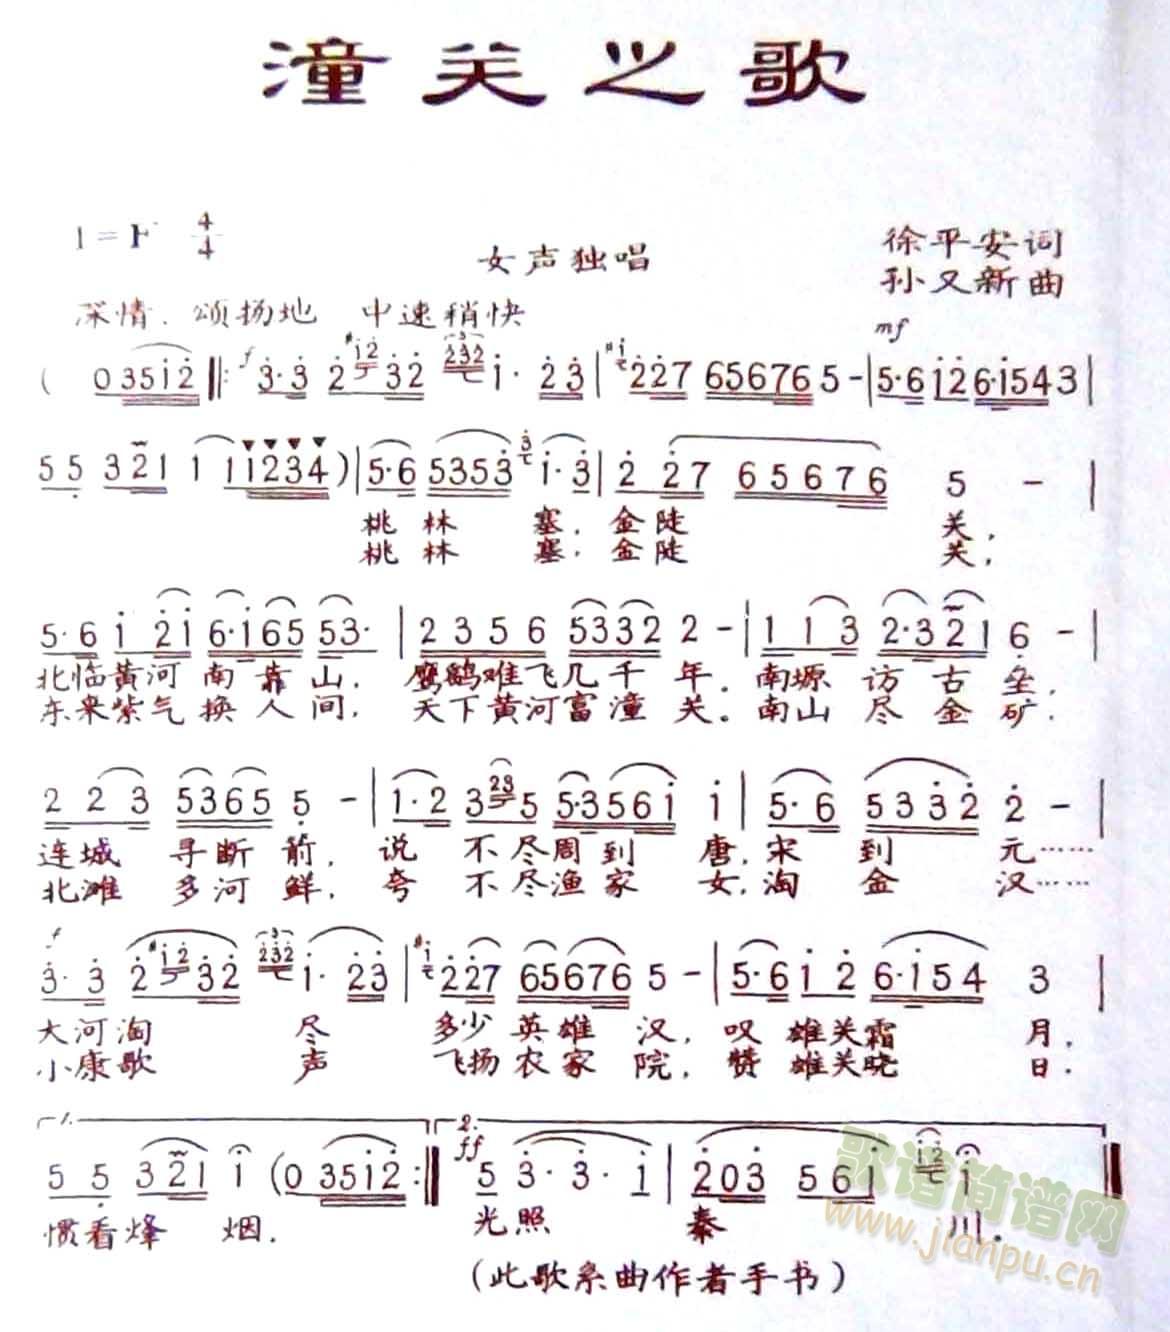 潼关之歌
1=F 4/4
女声独唱
徐平安词
孙又新曲
深情、颂扬地 中速稍快
mf
( 0 3 5 i 2 ‖: f 3· 3 2 3 2 i· 2 3 | 2 2 7 6 5 6 7 6 5 - | 5· 6 i 2 6· i 5 4 3 |
5 5 3 2 1 1 1 1 2 3 4 ) | 5· 6 5 3 5 3 i· 3 | 2 2 7 6 5 6 7 6 5 - |
桃林 塞，金陡 关，
桃林 塞，金陡 关，
5· 6 i 2 i 6· i 6 5 5 3· | 2 3 5 6 5 3 3 2 2 - | 1 1 3 2· 3 2 1 6 - |
北临黄河 南靠山， 鹰鹞难飞几千年。南塬 访古垒，
东来紫气 换人间， 天下黄河富潼关。南山 尽金矿，
2 2 3 5 3 6 5 5 - | 1· 2 3 5 5· 3 5 6 i i | 5· 6 5 3 3 2 2 - |
连城 寻断箭，说 不尽周到 唐，宋 到 元……
北滩 多河鲜，夸 不尽渔家 女，淘 金 汉……
f
3· 3 2 3 2 i· 2 3 | 2 2 7 6 5 6 7 6 5 - | 5· 6 i 2 6· i 5 4 3 |
大河淘 尽 多少英雄 汉，叹 雄关霜 月，
小康歌 声 飞扬农家 院，赞 雄关晓 日．
1. 2.
ff
5 5 3 2 1 i ( 0 3 5 i 2 :‖ 5 3· 3· i | 2 0 3 5 6 i i ‖
惯看烽 烟． 光照 秦 川．
(此歌系曲作者手书)
歌谱简谱网
www.jianpu.cn